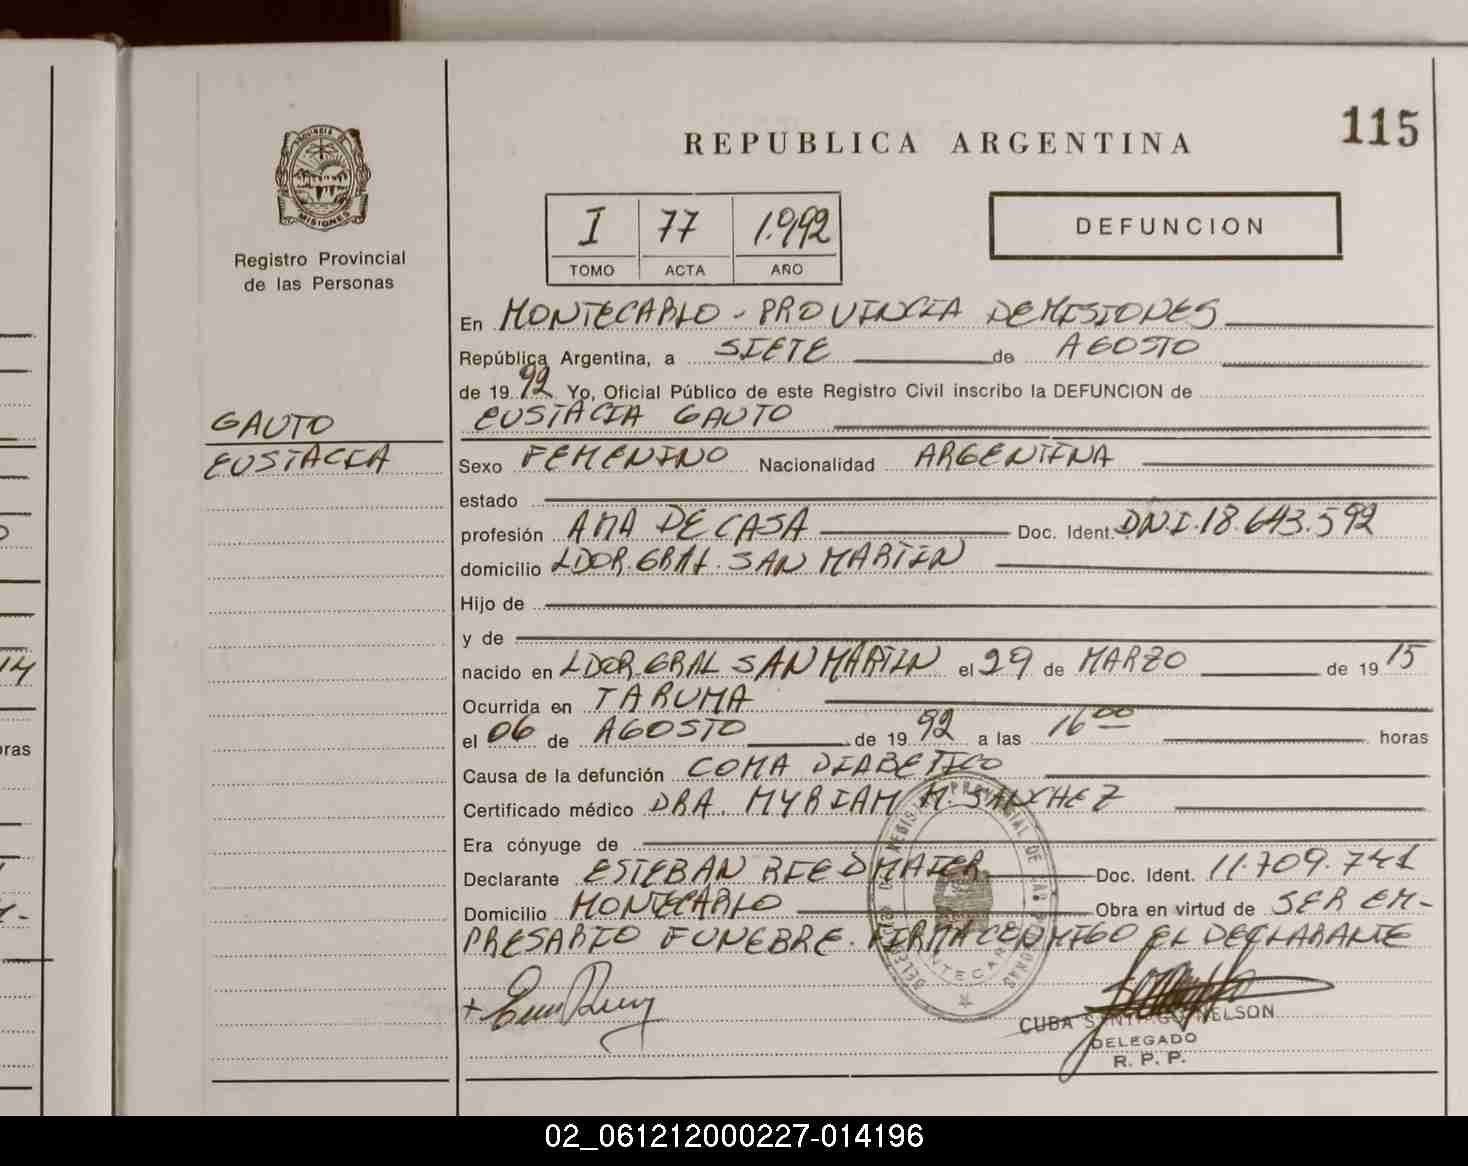 115
REPUBLICA ARGENTINA
PROVINCIA DE
MISIONES
Registro Provincial
de las Personas
I 77 1.992
TOMO ACTA AÑO
DEFUNCION
En MONTECARLO - PROVINCIA DE MISIONES
República Argentina, a SIETE de AGOSTO
de 1992 Yo, Oficial Público de este Registro Civil inscribo la DEFUNCION de
GAUTO
EUSTACIA
EUSTACIA GAUTO
Sexo FEMENINO Nacionalidad ARGENTINA
estado
profesión AMA DE CASA Doc. Ident. DNI. 18.643.592
domicilio LDOR. GRAL. SAN MARTIN
Hijo de
y de
nacido en LDOR. GRAL SAN MARTIN el 29 de MARZO de 1915
Ocurrida en TARUMA
el 06 de AGOSTO de 1992 a las 16 00 horas
Causa de la defunción COMA DIABETICO
Certificado médico DRA. MYRIAM M. SANCHEZ
Era cónyuge de
Declarante ESTEBAN RIEDMAIER Doc. Ident. 11.709.741
Domicilio MONTECARLO Obra en virtud de SER EM-
PRESARIO FUNEBRE. FIRMA CONMIGO EL DECLARANTE
CUBA SANTIAGO NELSON
DELEGADO
R. P. P.
14
oras
02_061212000227-014196